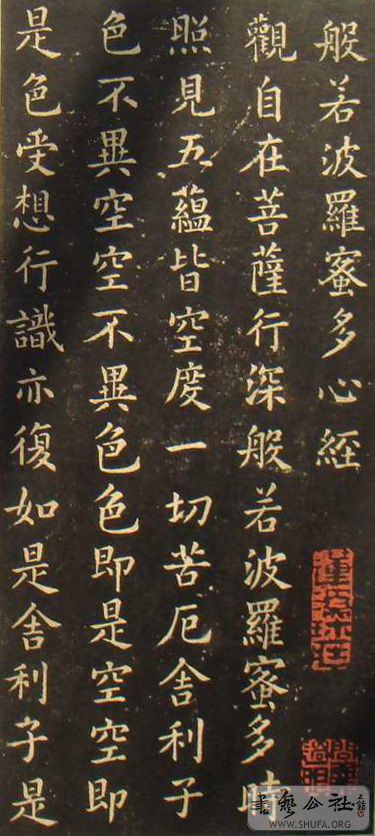 般若波羅蜜多心經
觀自在菩薩行深般若波羅蜜多時
照見五蘊皆空度一切苦厄舍利子
色不異空空不異色色即是空空即
是色受想行識亦復如是舍利子是
書藝公社
WWW.SHUFA.ORG